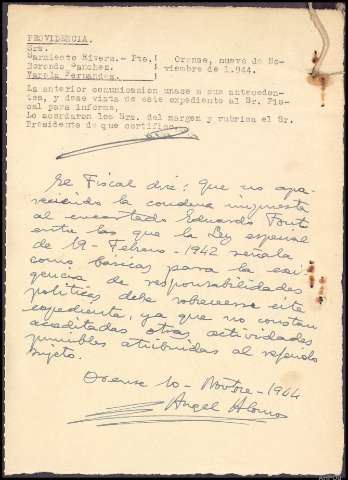 PROVIDENCIA.
Sres.
Sarmiento Rivera.- Pte.
Morondo Sanchez.
Varela Fernandez.
Orense, nueve de No-
viembre de 1.944.
La anterior comunicacion unase a sus anteceden-
tes, y dese vista de este expediente al Sr. Fis-
cal para informe,
Lo acordaron los Sres. del margen y rubrica el Sr.
Presidente de que certifico.
El Fiscal dice: que no apa-
reciendo la condena impuesta
al encartado Eduardo
entre las que la Ley especial
de 19 - Febrero - 1942 señala
como básicas para la exi-
gencia de responsabilidades
políticas debe sobreseerse este
expediente, ya que no constan
acreditadas otras actividades
punibles atribuidas al referido
sujeto.
Orense 10 - Novbre - 1944
Angel Alonso